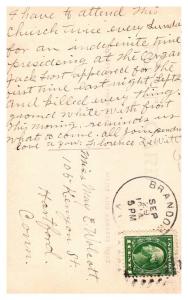 I have to attend this
church once every Sunday
for an indefinite time
presiding at the Organ
Jack frost appeared for the
first time last night
and killed every thing
ground white with frost
this morning, reminds us
what to come. all join in
love to you. Florence
Miss May E. Wolcott
105 Kenyon St.
Hartford,
Conn.
BRANDON
SEP
5 PM